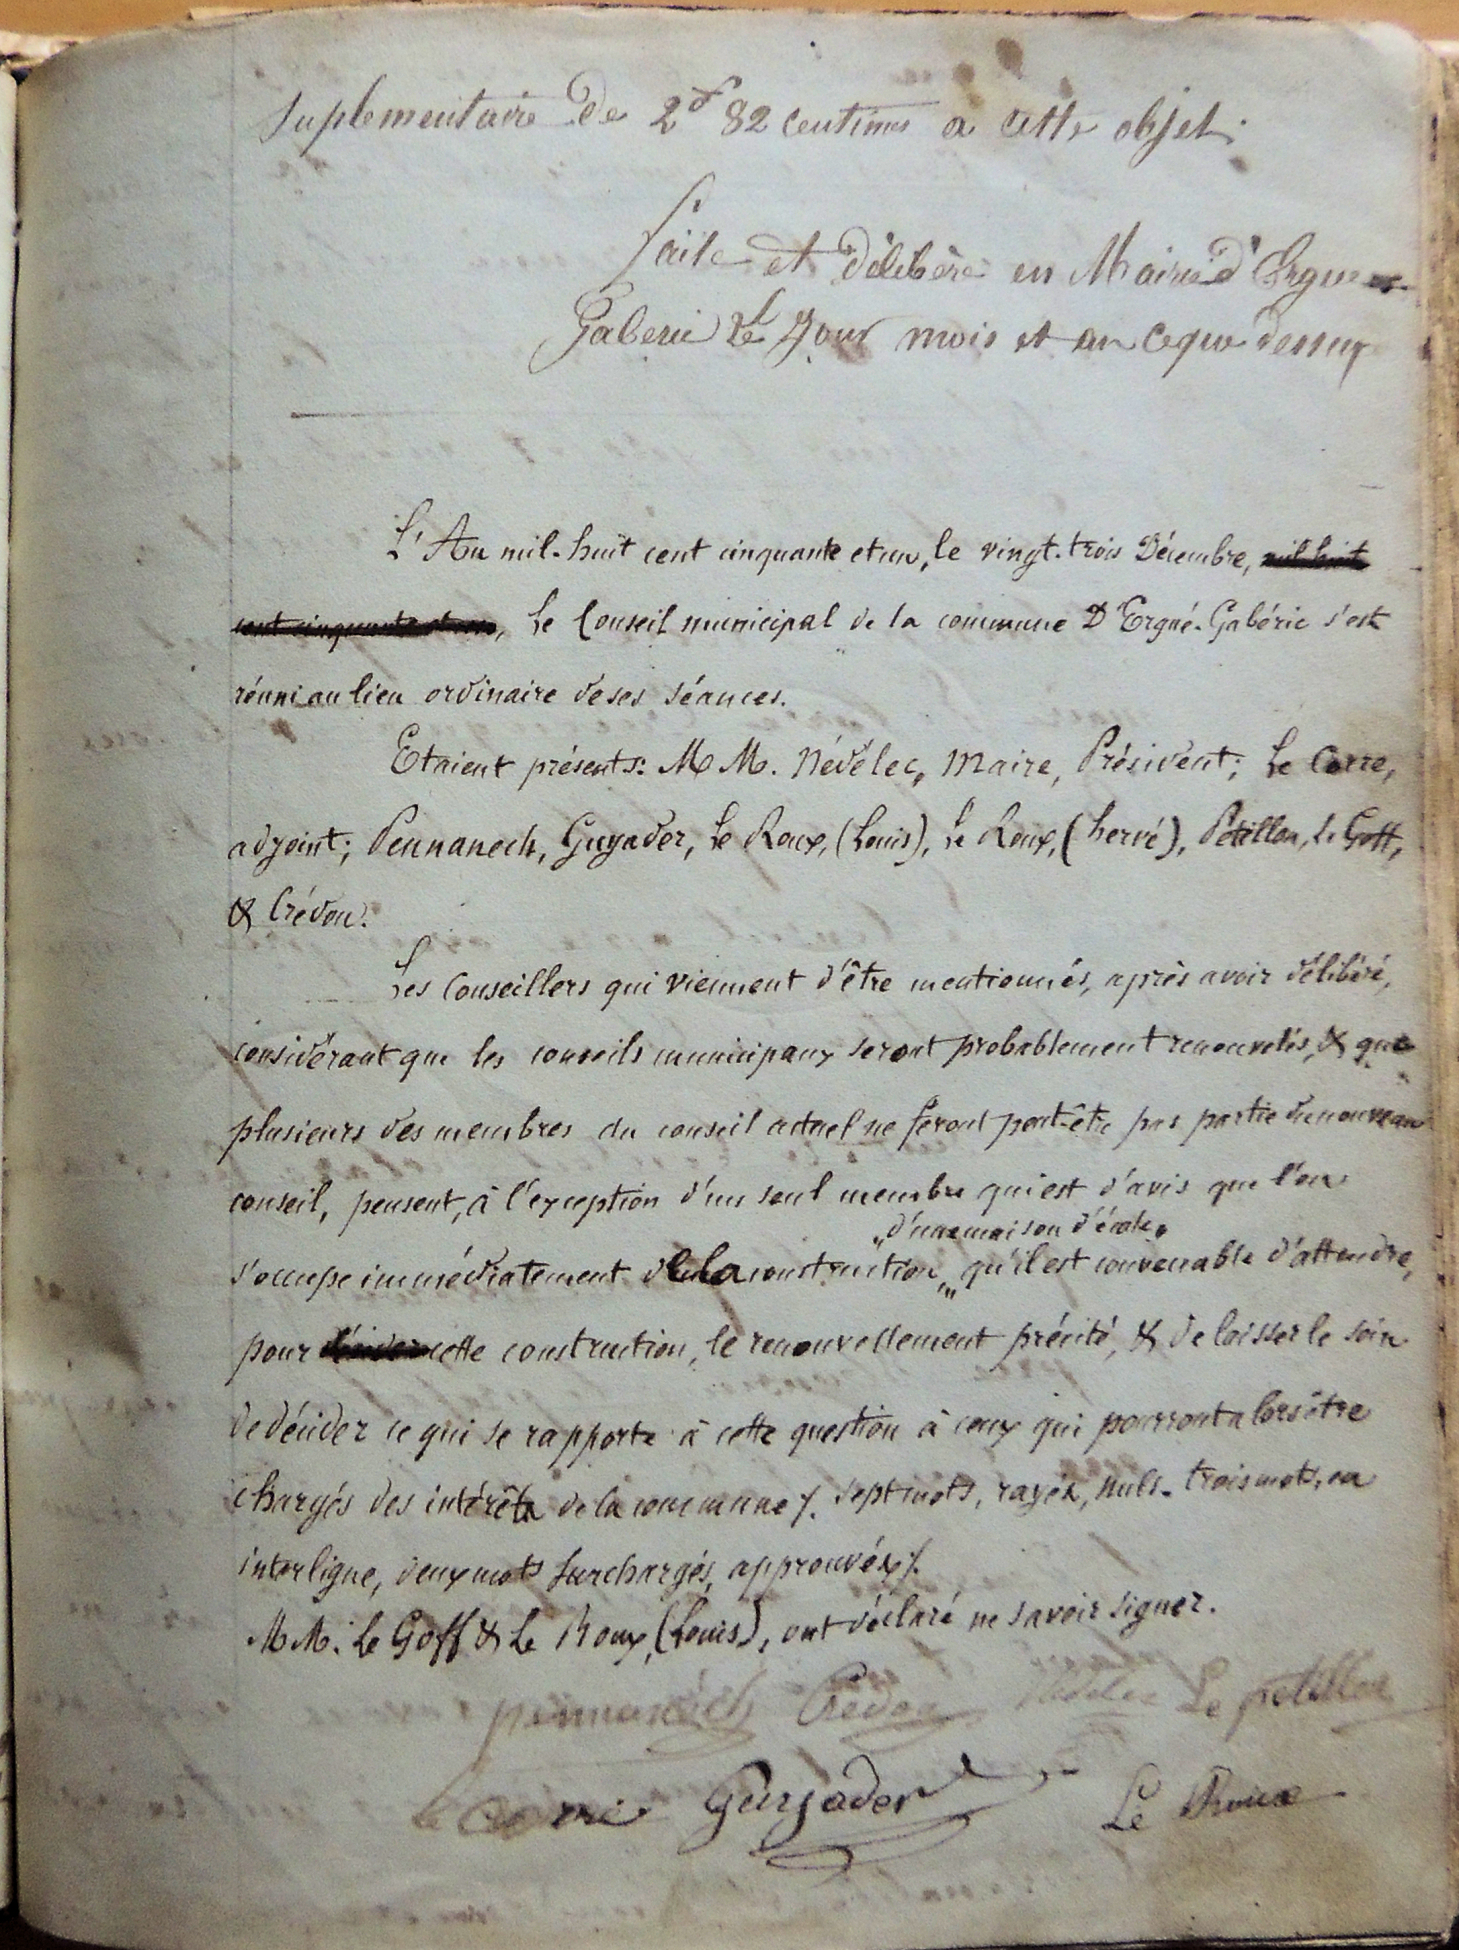 suplementaire de 2f 82 centimes a cette objet.
faite et délibéré en Mairie d'Ergue
Gaberic le Jour mois et an ceque dessus
L'An mil-huit cent cinquante et un, le vingt-trois Décembre, mil huit
cent cinquante et un, le Conseil municipal de la commune D'Ergué-Gabéric s'est
réuni au lieu ordinaire de ses séances.
Etaient présents: MM. Nédélec, Maire, Président; Le Corre,
adjoint; Pennanech, Guyader, Le Roux, (Louis), Le Roux, (hervé), Pétillon, Le Goff,
& Crédou.
Les Conseillers qui viennent d'être mentionnés, après avoir délibéré,
considérant que les conseils municipaux seront probablement renouvelés, & que
plusieurs des membres du conseil actuel ne feront peut-être pas partie du nouveau
conseil, pensent, à l'exception d'un seul membre qui est d'avis que l'on
„d'une maison d'école„
s'occupe immédiatement de la construction „ qu'il est convenable d'attendre,
pour décider cette construction, le renouvellement précité, & de laisser le soin
de décider ce qui se rapporte à cette question à ceux qui pourront alors être
chargés des intérêts de la commune ⁒. sept mots, rayés, nuls. trois mots, en
interligne, deux mots surchargés, approuvés ⁒.
MM. Le Goff & Le Roux, (Louis), ont déclaré ne savoir signer.
pennanech Credou Nédélec Le petillon
le corre Guyader Le Roux